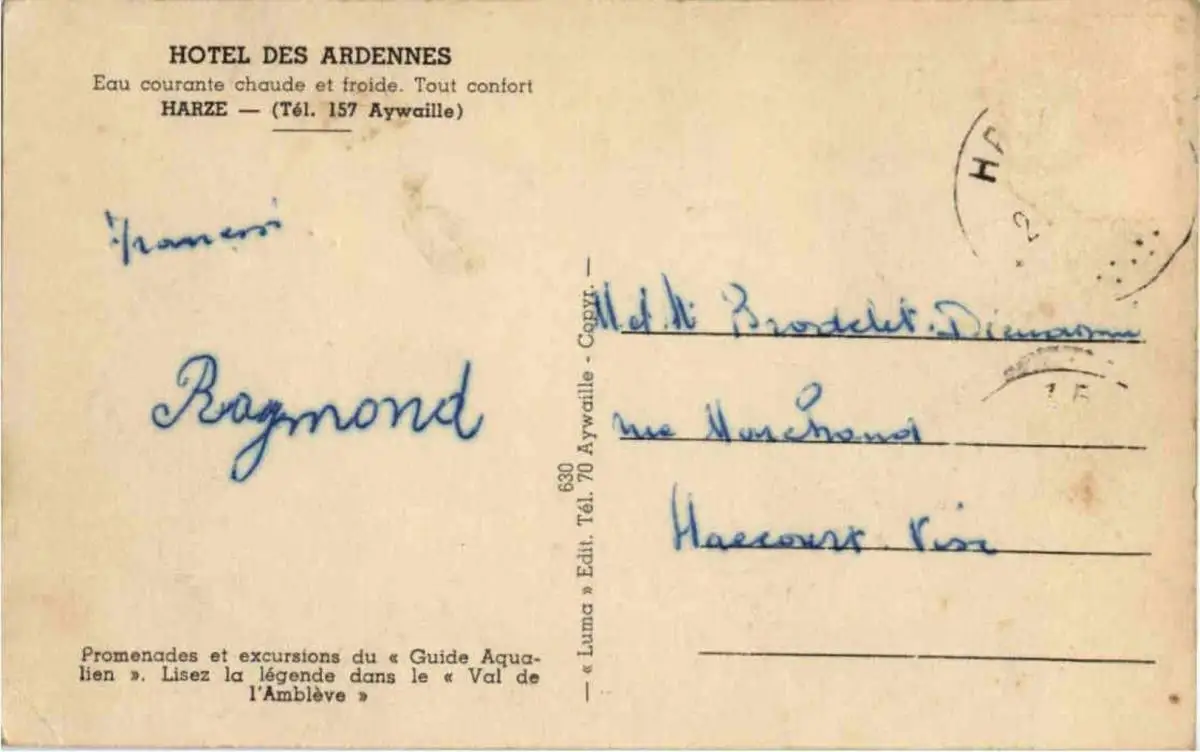 HOTEL DES ARDENNES
Eau courante chaude et froide. Tout confort
HARZE — (Tél. 157 Aywaille)
Raymond
Promenades et excursions du « Guide Aqua-
lien ». Lisez la légende dans le « Val de
l'Amblève »
— « Luma » Edit. Tél. 70 Aywaille - Copyr. —
630
HA
2
M et M
rue Marchand
Haccourt Visé
15